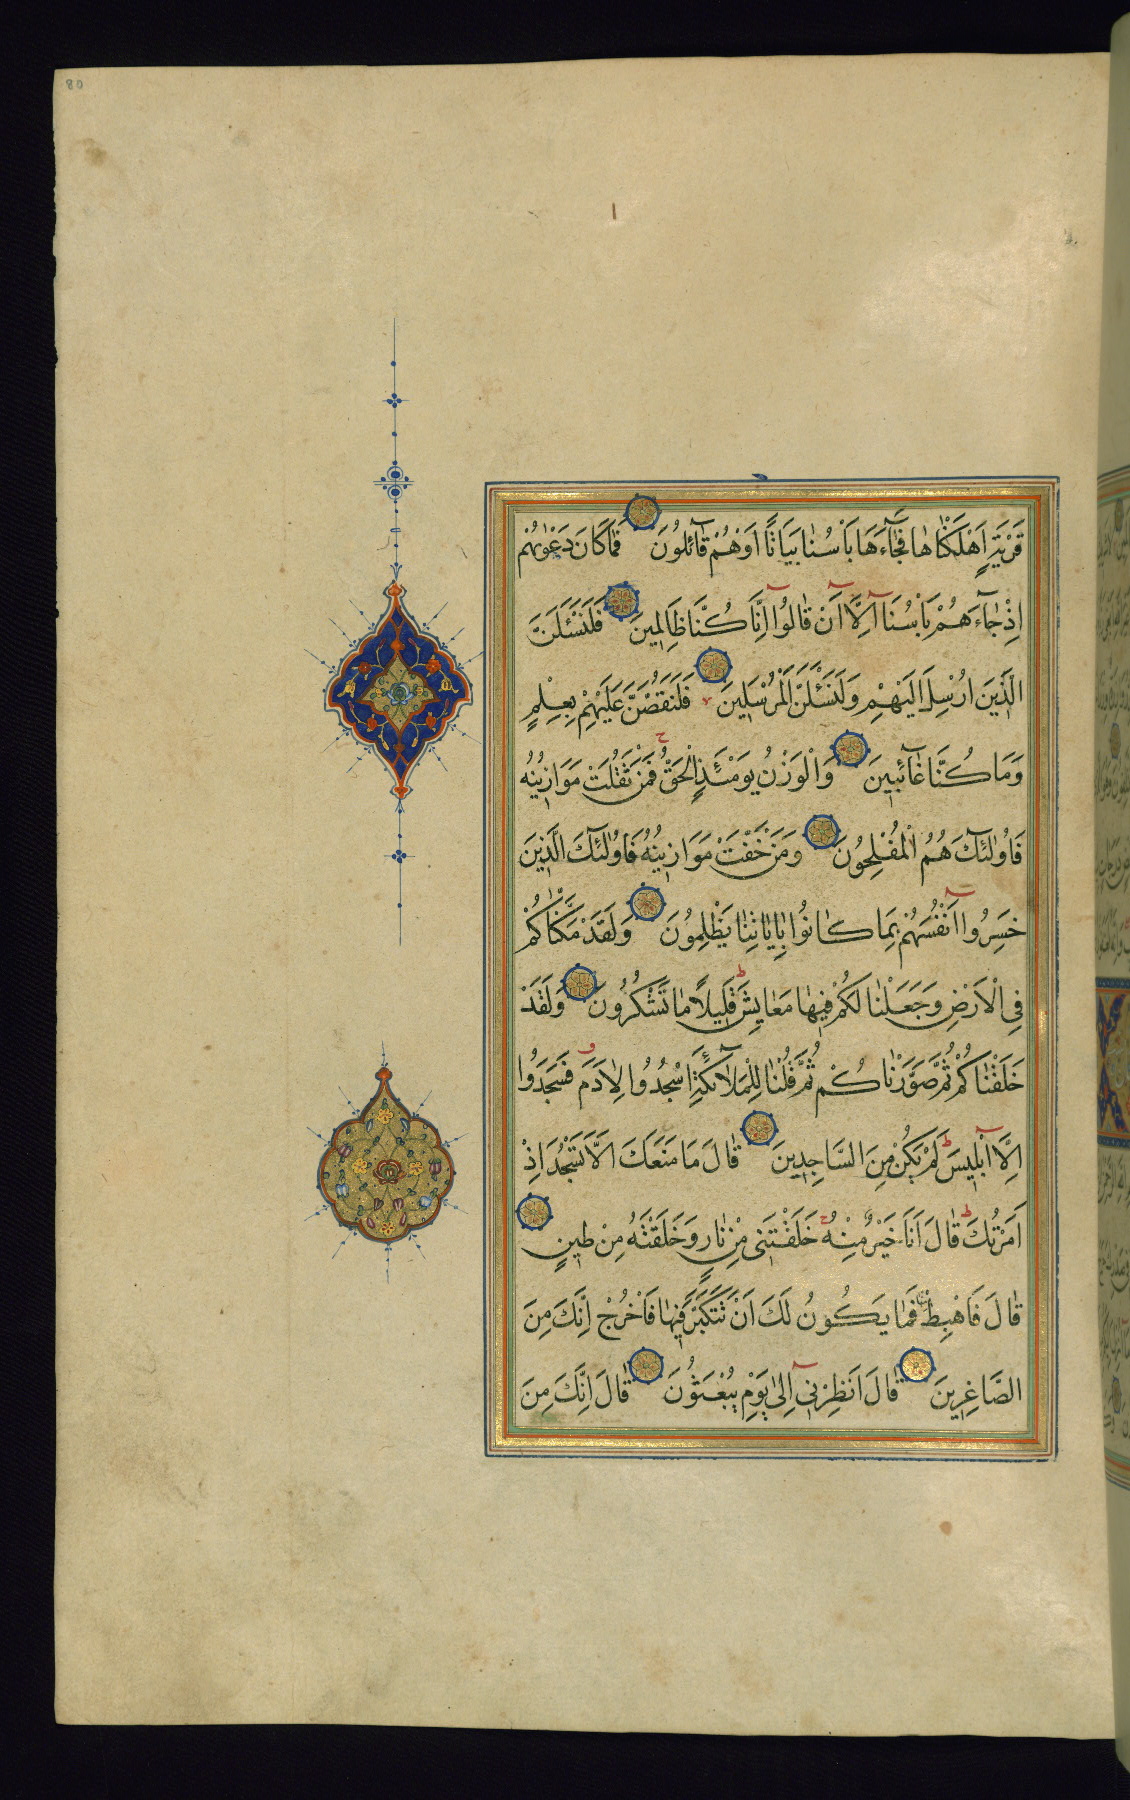 80
قَرْيَةٍ اَهْلَكْنٰاهٰا فَجٰٓاءَهَا بَأْسُنٰا بَيَاتًا اَوْهُمْ قٰٓائِلُونَ فَمٰاكَانَ دَعْوٰيهُمْ
اِذْ جٰٓاءَهُمْ بَأْسُنَآ اِلَّآ اَنْ قٰالُوٓا اِنَّا كُنَّا ظَالِمِينَ فَلَنَسْئَلَنَّ
الَّذِينَ اُرْسِلَ اِلَيْهِمْ وَلَنَسْئَلَنَّ الْمُرْسَلِينَ فَلَنَقُصَّنَّ عَلَيْهِمْ بِعِلْمٍ
وَمَا كُنَّا غٰٓائِبِينَ وَالْوَزْنُ يَوْمَئِذٍ الْحَقُّ فَمَنْ ثَقُلَتْ مَوَازِينُهُ
فَاُولٰٓئِكَ هُمُ الْمُفْلِحُونَ وَمَنْ خَفَّتْ مَوَازِينُهُ فَاُولٰٓئِكَ الَّذِينَ
خَسِرُوٓا اَنْفُسَهُمْ بِمَا كَانُوا بِاٰيَاتِنَا يَظْلِمُونَ وَلَقَدْ مَكَّنَّاكُمْ
فِي الْاَرْضِ وَجَعَلْنٰا لَكُمْ فِيهٰا مَعَايِشَ قَلِيلًا مٰا تَشْكُرُونَ وَلَقَدْ
خَلَقْنٰاكُمْ ثُمَّ صَوَّرْنٰاكُمْ ثُمَّ قُلْنٰا لِلْمَلٰٓائِكَةِ اسْجُدُوا لِاٰدَمَ فَسَجَدُوٓا
اِلَّآ اِبْلِيسَ لَمْ يَكُنْ مِنَ السَّاجِدِينَ قٰالَ مَا مَنَعَكَ اَلَّا تَسْجُدَ اِذْ
اَمَرْتُكَ قٰالَ اَنَا خَيْرٌ مِنْهُ خَلَقْتَنِى مِنْ نٰارٍ وَخَلَقْتَهُ مِنْ طِينٍ
قٰالَ فَاهْبِطْ فَمٰا يَكُونُ لَكَ اَنْ تَتَكَبَّرَ فِيهٰا فَاخْرُجْ اِنَّكَ مِنَ
الصَّاغِرِينَ قٰالَ اَنْظِرْنِىٓ اِلىٰ يَوْمِ يُبْعَثُونَ قٰالَ اِنَّكَ مِنَ